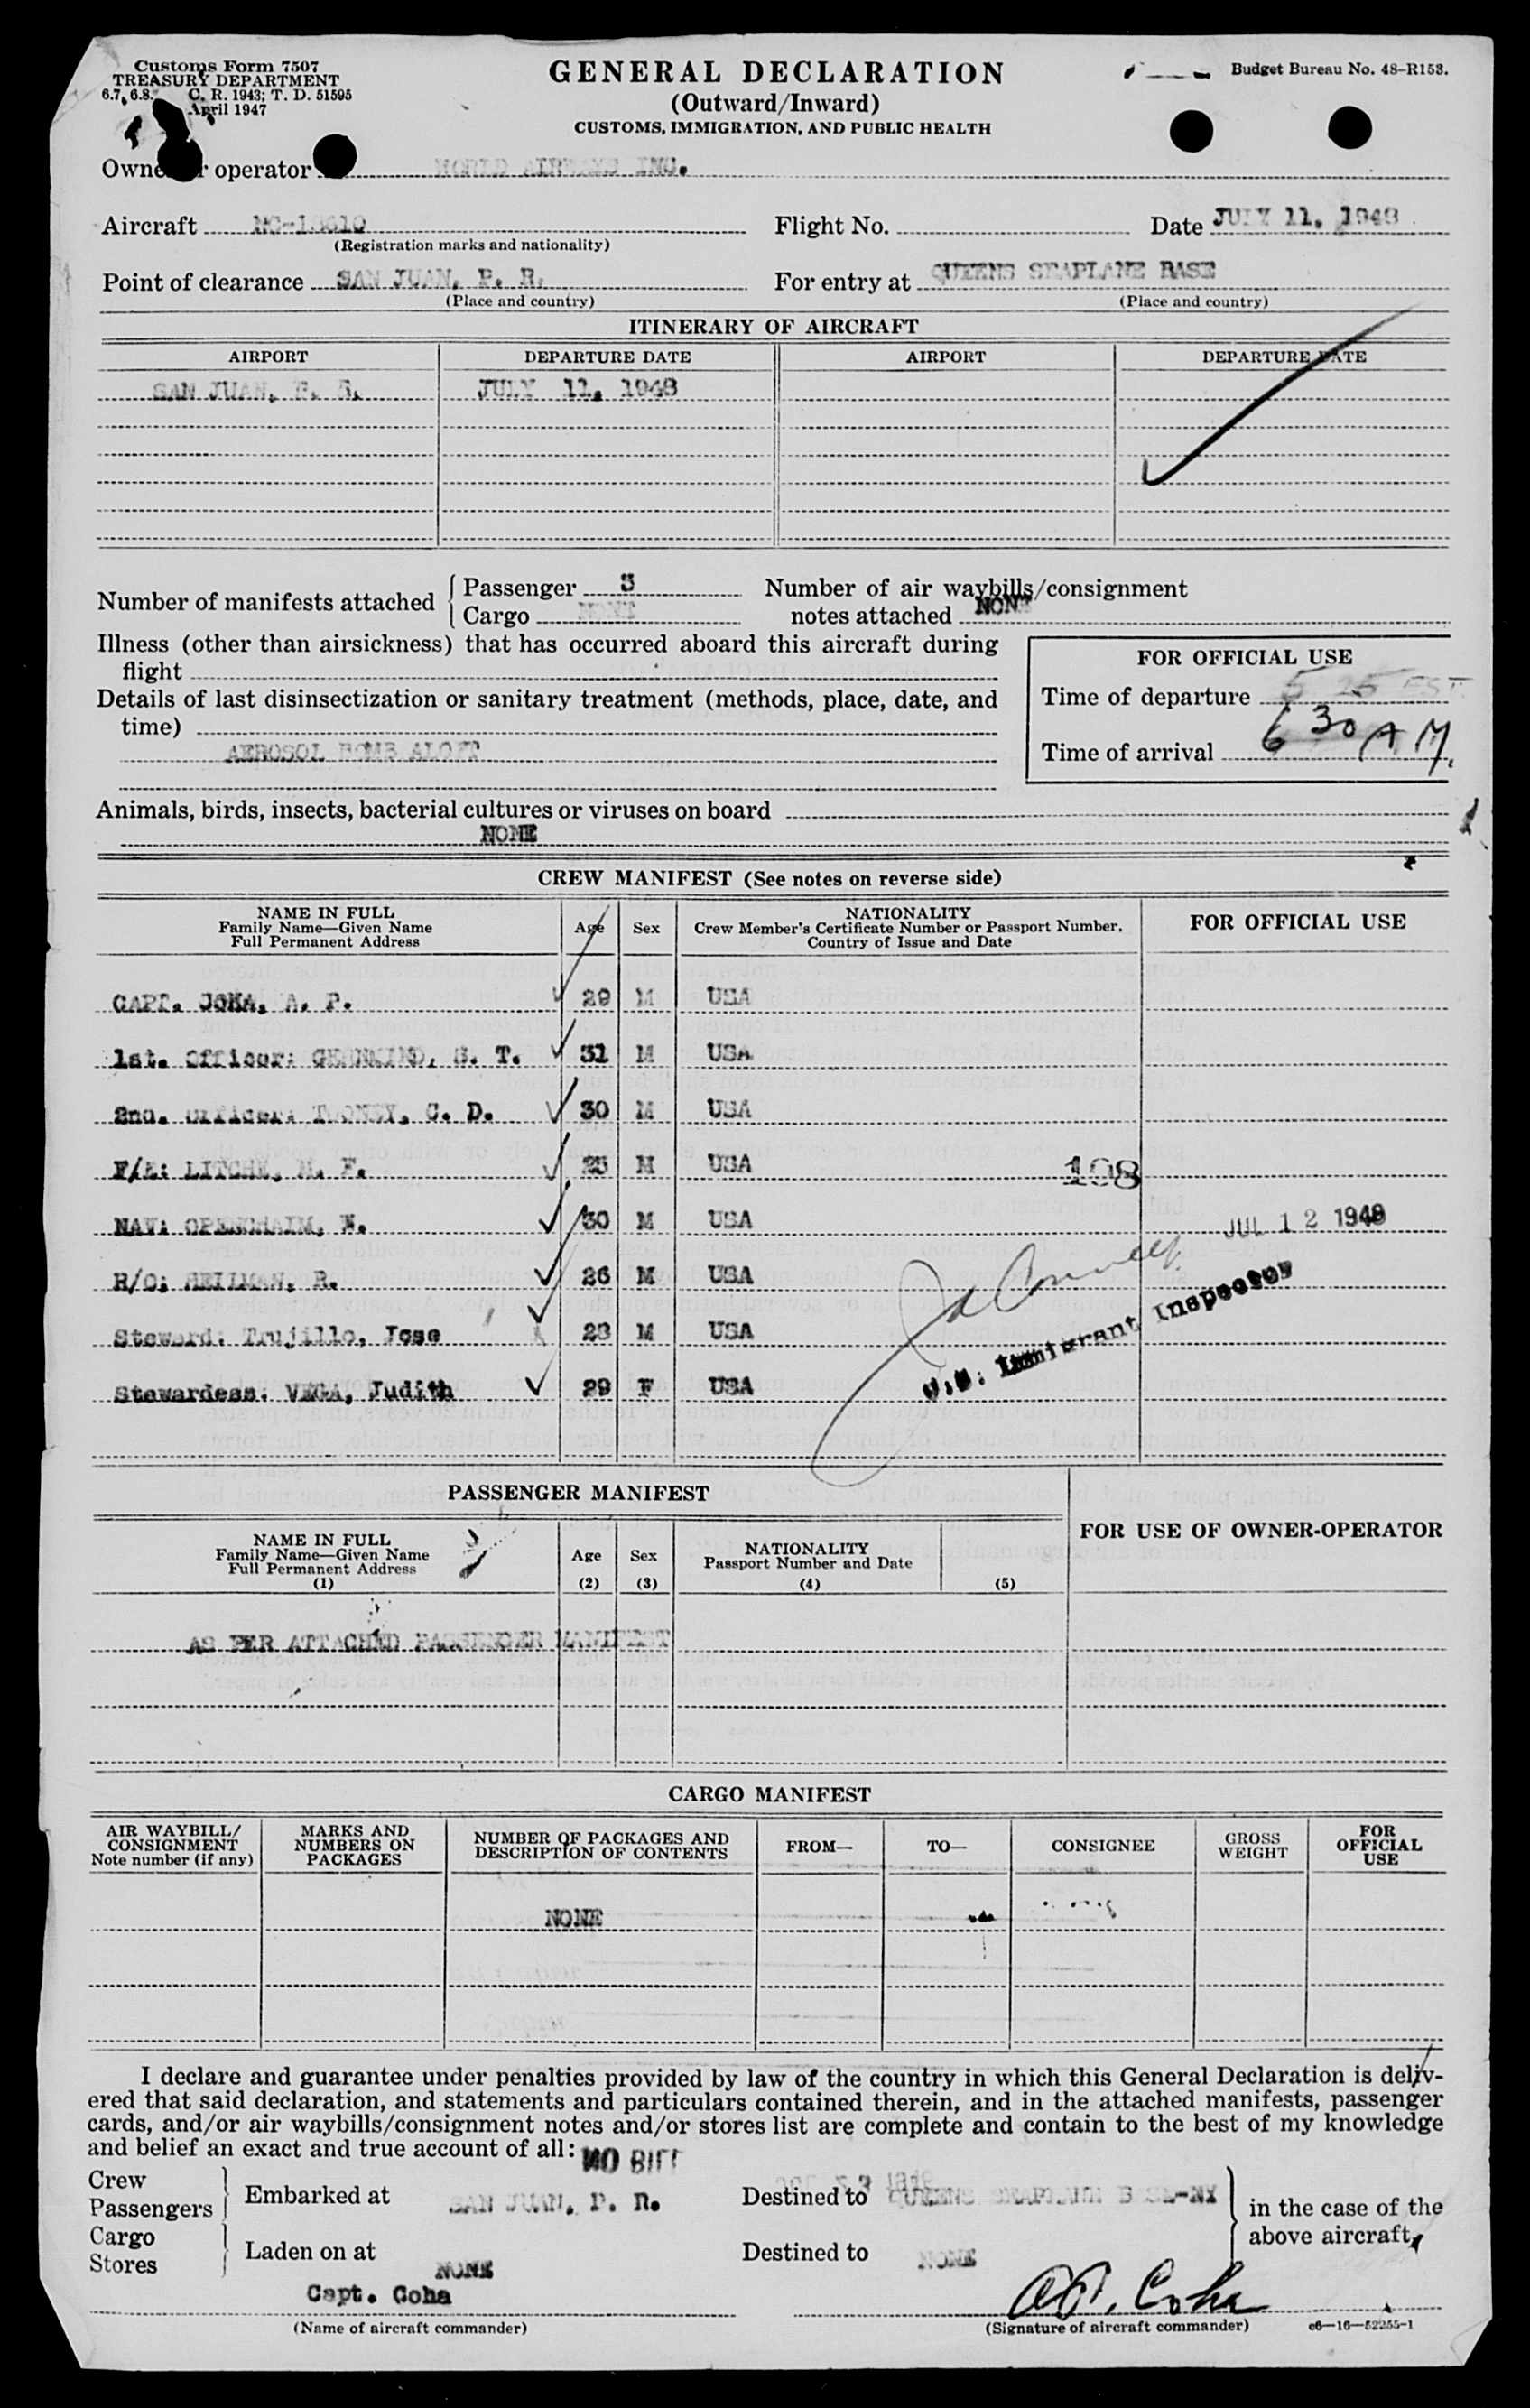 Customs Form 7507
TREASURY DEPARTMENT
6.7, 6.8. C. R. 1943; T. D. 51595
April 1947
GENERAL DECLARATION
(Outward/Inward)
CUSTOMS, IMMIGRATION, AND PUBLIC HEALTH
Budget Bureau No. 48-R153.
Owner operator WORLD AIRWAYS INC.
Aircraft
(Registration marks and nationality)
Flight No.
Date JULY 11, 1948
Point of clearance SAN JUAN, P. R.
(Place and country)
For entry at QUEENS SEAPLANE BASE
(Place and country)
ITINERARY OF AIRCRAFT
AIRPORT DEPARTURE DATE AIRPORT DEPARTURE DATE
SAN JUAN, P. R. JULY 11, 1948
Number of manifests attached
Passenger 3
Cargo NONE
Number of air waybills/consignment
notes attached NONE
Illness (other than airsickness) that has occurred aboard this aircraft during
flight
Details of last disinsectization or sanitary treatment (methods, place, date, and
time)
AEROSOL BOMB ALOFT
FOR OFFICIAL USE
Time of departure 5 25 EST
Time of arrival 6 30 AM.
Animals, birds, insects, bacterial cultures or viruses on board
NONE
CREW MANIFEST (See notes on reverse side)
NAME IN FULL
Family Name—Given Name
Full Permanent Address
Age
Sex
NATIONALITY
Crew Member's Certificate Number or Passport Number,
Country of Issue and Date
FOR OFFICIAL USE
CAPT. A. P. 29 M USA
1st. Officer: S. T. 31 M USA
2nd. Officer: C. D. 30 M USA
F/E: M. F. 25 M USA
198
NAV: 30 M USA
JUL 12 1948
R/O: R. 26 M USA
Steward: Trujillo, Jose 28 M USA
U.S. Immigrant Inspector
Stewardess: VEGA, Judith 29 F USA
PASSENGER MANIFEST
NAME IN FULL
Family Name—Given Name
Full Permanent Address
(1)
Age
(2)
Sex
(3)
NATIONALITY
Passport Number and Date
(4) (5)
FOR USE OF OWNER-OPERATOR
AS PER ATTACHED PASSENGER MANIFEST
CARGO MANIFEST
AIR WAYBILL/
CONSIGNMENT
Note number (if any)
MARKS AND
NUMBERS ON
PACKAGES
NUMBER OF PACKAGES AND
DESCRIPTION OF CONTENTS
FROM—
TO—
CONSIGNEE
GROSS
WEIGHT
FOR
OFFICIAL
USE
NONE
I declare and guarantee under penalties provided by law of the country in which this General Declaration is deliv-
ered that said declaration, and statements and particulars contained therein, and in the attached manifests, passenger
cards, and/or air waybills/consignment notes and/or stores list are complete and contain to the best of my knowledge
and belief an exact and true account of all:
Crew
Passengers
Embarked at SAN JUAN, P. R.
Destined to QUEENS SEAPLANE BASE-NY
Cargo
Stores
Laden on at NONE
Destined to NONE
in the case of the
above aircraft,
Capt. Coha
(Name of aircraft commander)
A. P. Coha
(Signature of aircraft commander)
c6—16—52255-1